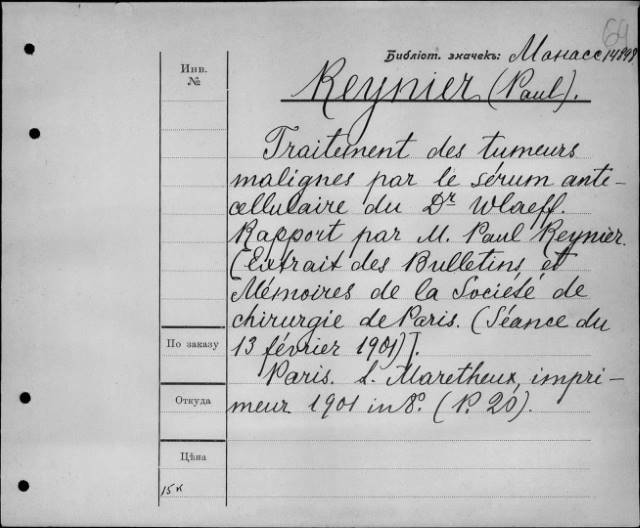 64
Библіот. значекъ: Монасс 14898
Инв.
№
Reynier (Paul).
Traitement des tumeurs
malignes par le sérum anti-
cellulaire du Dr Wlaeff.
Rapport par M. Paul Reynier.
(Extrait des Bulletins et
Mémoires de la Société de
chirurgie de Paris. (Séance du
13 février 1901)].
По заказу
Paris. L. Maretheux, impri-
meur 1901 in 8°. (P. 20).
Откуда
Цѣна
15 к